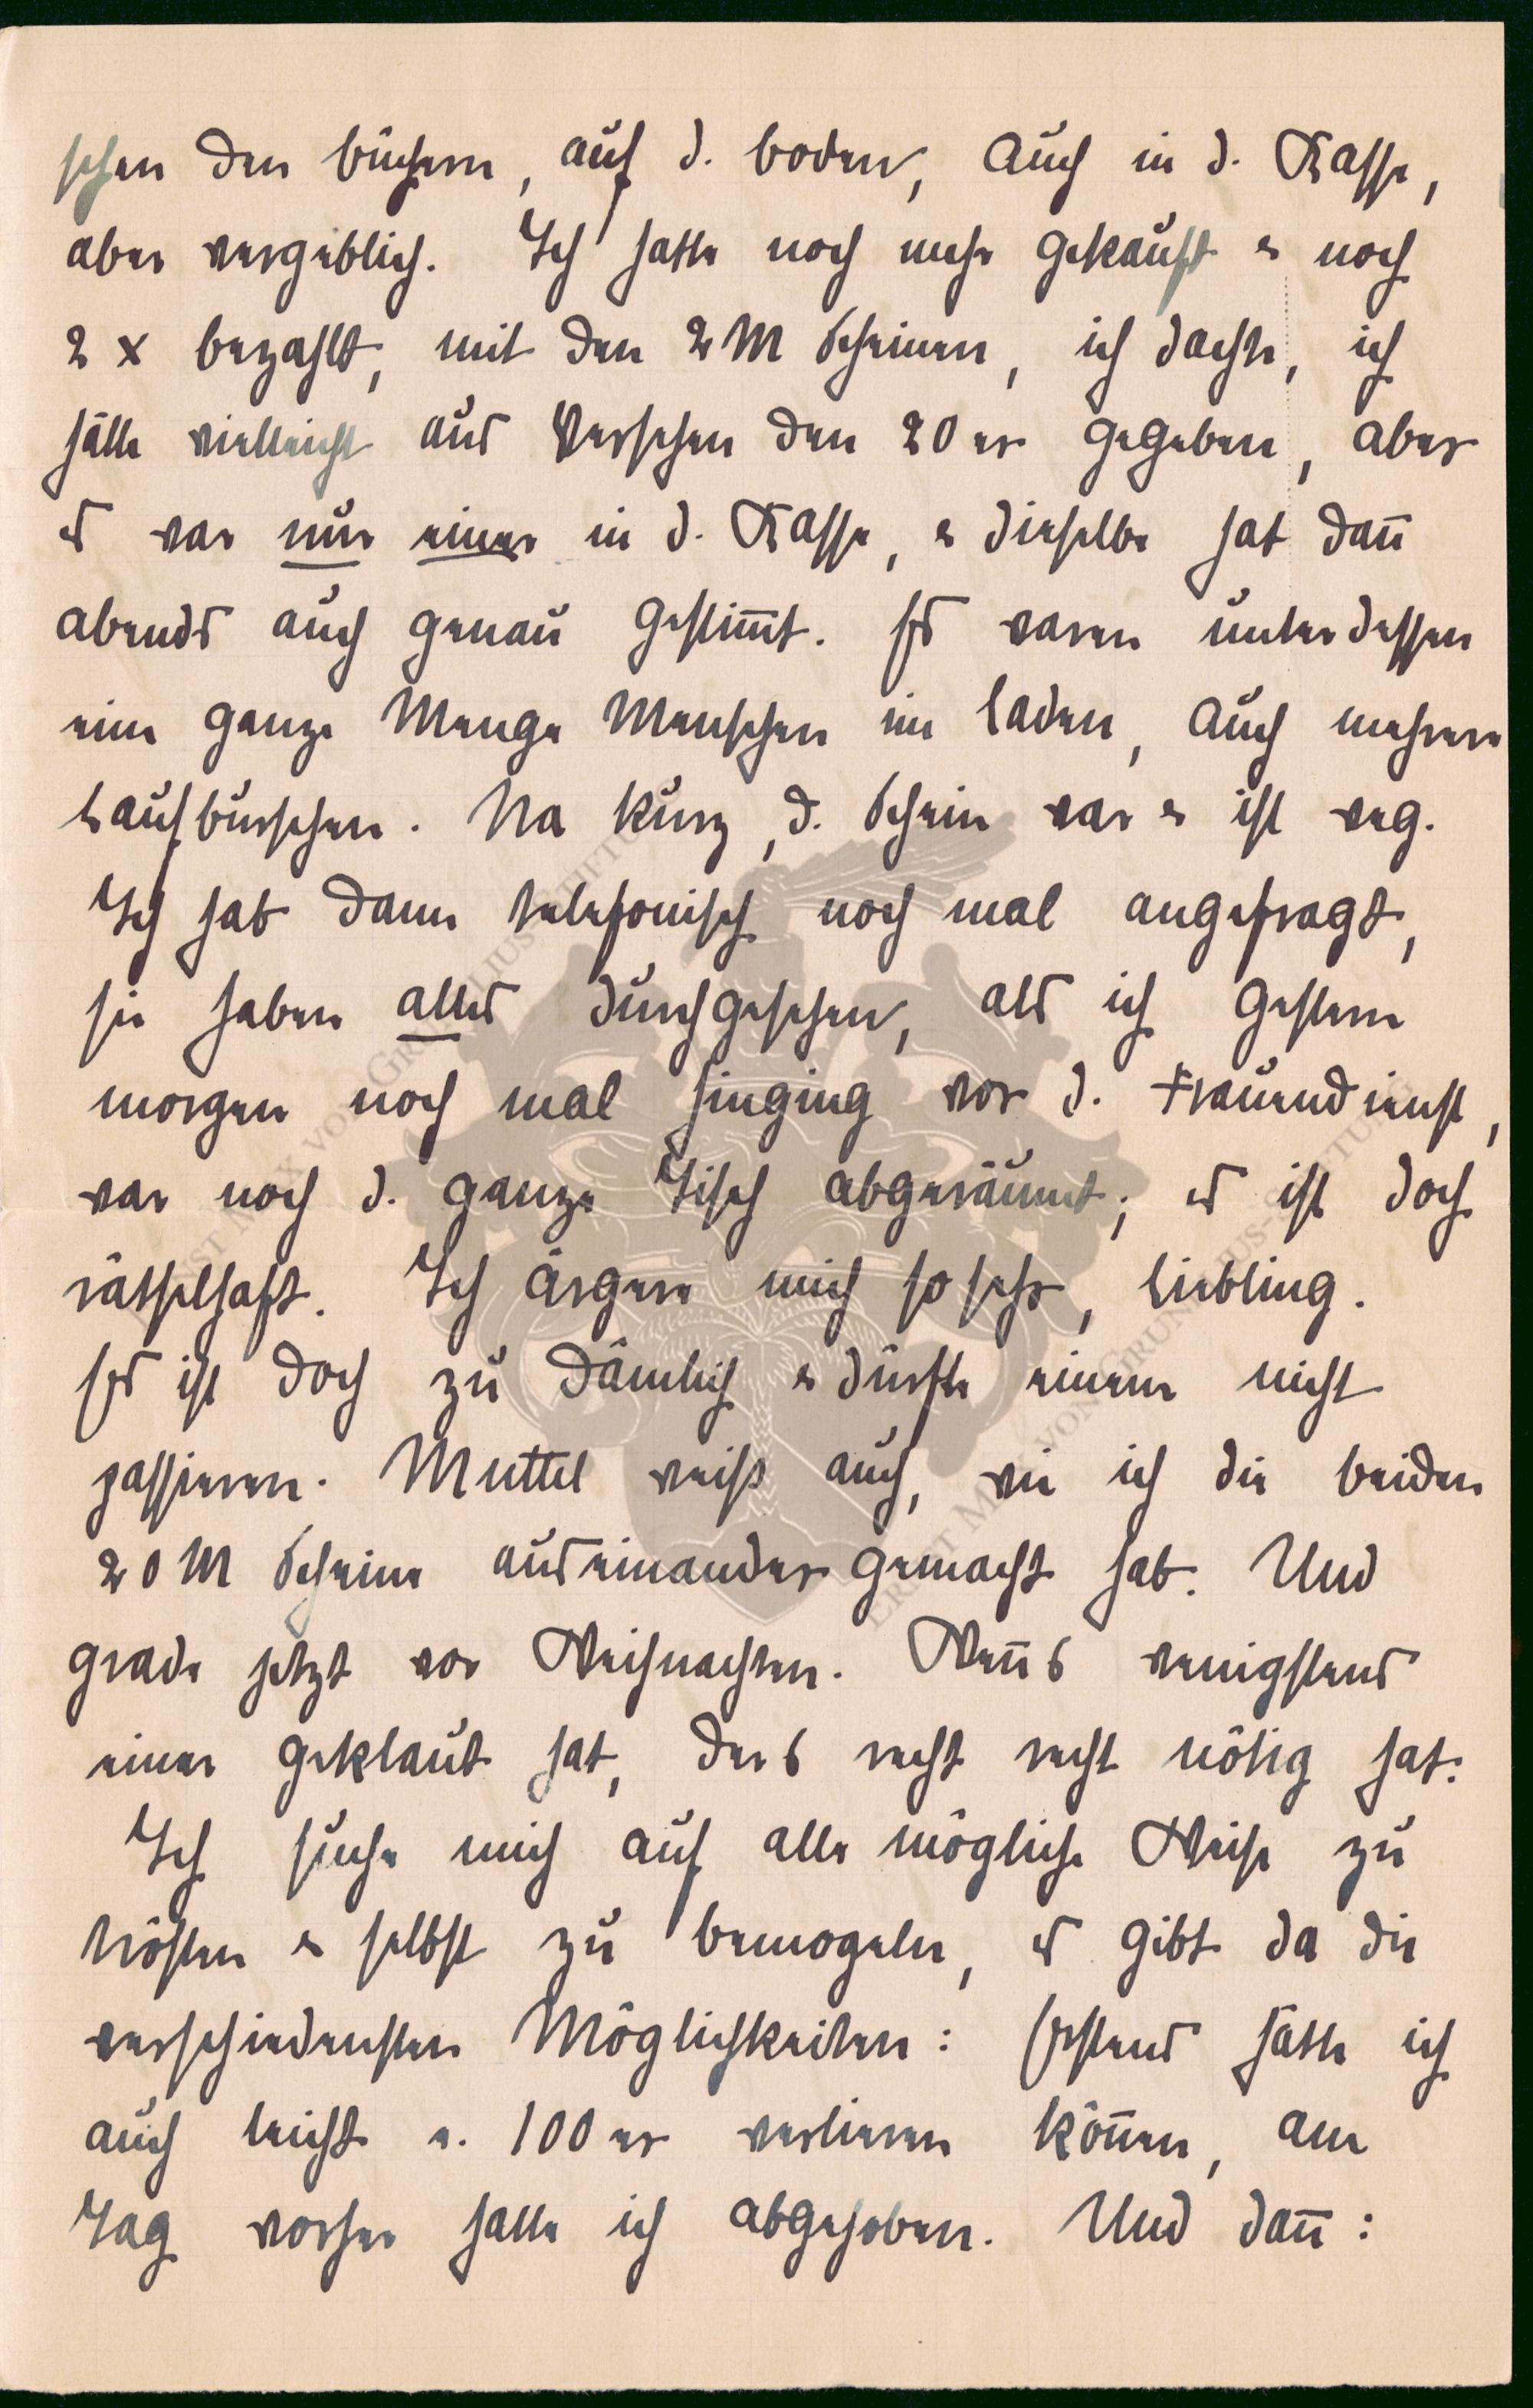 schen den Büchern, auf d. Boden, auch in d. Kasse,
aber vergeblich. Ich hatte noch mehr gekauft & noch
2 x bezahlt, mit den 2 M Scheinen, ich dachte, ich
hätte vielleicht aus Versehen den 20 er gegeben, aber
es war nur einer in d. Kasse, & dieselbe hat dan̄
abends auch genau gestim̄t. Es waren unterdessen
eine ganze Menge Menschen im Laden, auch mehrere
Laufburschen. Na kurz, d. Schein war & ist weg.
Ich hab dann telefonisch noch mal angefragt,
sie haben alles durchgesehen, als ich gestern
morgen noch mal hinging vor d. Frauendienst,
war noch d. ganze Tisch abgeräumt; es ist doch
rätselhaft. Ich ärgere mich so sehr, Liebling.
Es ist doch zu dämlich & dürfte einem nicht
passieren. Muttel weiß auch, wie ich die beiden
20 M Scheine auseinander gemacht hab. Und
grade jetzt vor Weihnachten. Wen̄s wenigstens
einer geklaut hat, der's recht recht nötig hat.
Ich suche mich auf alle mögliche Weise zu
trösten & selbst zu bemogeln, es gibt da die
verschiedensten Möglichkeiten: Erstens hätte ich
auch leicht e. 100 er verlieren kön̄en, am
Tag vorher hatte ich abgehoben. Und dan̄:
ERNST MAX VON GRUNELIUS-STIFTUNG
ERNST MAX VON GRUNELIUS-STIFTUNG